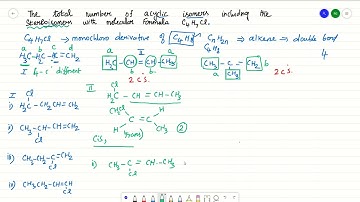 The total numbers of acyclic isomers including the
stereoisomers with molecular formula C4H7Cl.
C4H7Cl → monochloro derivative of C4H8 CnH2n ⇒ alkene → double bond
C4H8
a b c d
H3C-CH2-C=CH2
I 4-c' different
I
a b b a
H3C-CH=CH-CH3
2 C.S.
a b
CH3-C=CH2
CH3
a
2 C.S.
4
I Cl
i) H2C-CH2-CH=CH2
ii) CH3-CH-CH=CH2
Cl
iii) CH3-CH2-C=CH2
Cl
iv) CH3CH2-CH=CH
Cl
II Cl
i) H2C-CH=CH-CH3
CH2Cl H
C=C
H
Cis, trans) 2
ii) CH3-C=CH-CH3 ;
Cl